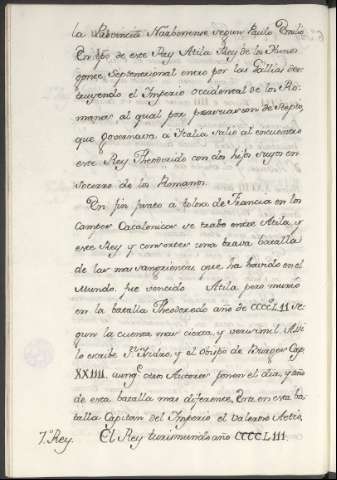 la Provincia Narbonense segun Paulo Emilio
En tpo de este Rey Atila Rey de los Hunos
gente Septenzional entro por las Gallias des-
truyendo el Imperio occidental de los Ro-
manos al qual por persuacion de
que governava a Italia salio al encuentro
este Rey Theodoredo con dos hijos suyos en
Socorro de los Romanos.
En fin junto a tolosa de Francia en los
Campos Catalonicos se trabo entre Atila y
este Rey y consortes una brava batalla
de las mas sangrientas que ha havido en el
Mundo, fue vencido Atila, pero murio
en la batalla Theodoredo año de CCCCLII se-
gun la cuenta mas cierta, y verisimil. Assi
lo escribe Sn. Isidro, y el obispo de Burgos Cap.
XXIIII. aunqe. otros Autores ponen el dia, y año
de esta batalla mas diferente, Era en esta ba-
talla Capitan del Imperio el valeroso Aetio.
7.º Rey. El Rey turismundo año CCCCLIII.